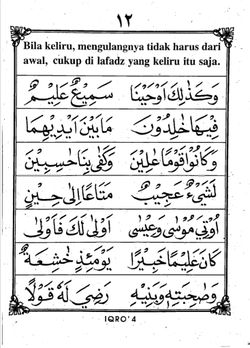 ١٢
Bila keliru, mengulangnya tidak harus dari
awal, cukup di lafadz yang keliru itu saja.
وَكَذٰلِكَ اَوْحَيْنَا سَمِيْعٌ عَلِيْمٌ
فِيْهَا خٰلِدُوْنَ مَا بَيْنَ اَيْدِيْهِمَا
وَكَانُوْا قَوْمًا عٰلِيْنَ وَكَفٰى بِنَا حٰسِبِيْنَ
لَشَيْءٌ عَجِيْبٌ مَتَاعًا اِلٰى حِيْنٍ
اُوْتِيَ مُوْسٰى وَعِيْسٰى اَوْلٰى لَكَ فَاَوْلٰى
كَانَ عَلِيْمًا خَبِيْرًا يَوْمَئِذٍ خٰشِعَةٌ
وَصٰحِبَتِهٖ وَبَنِيْهِ رَضِيَ لَهٗ قَوْلًا
IQRO'4